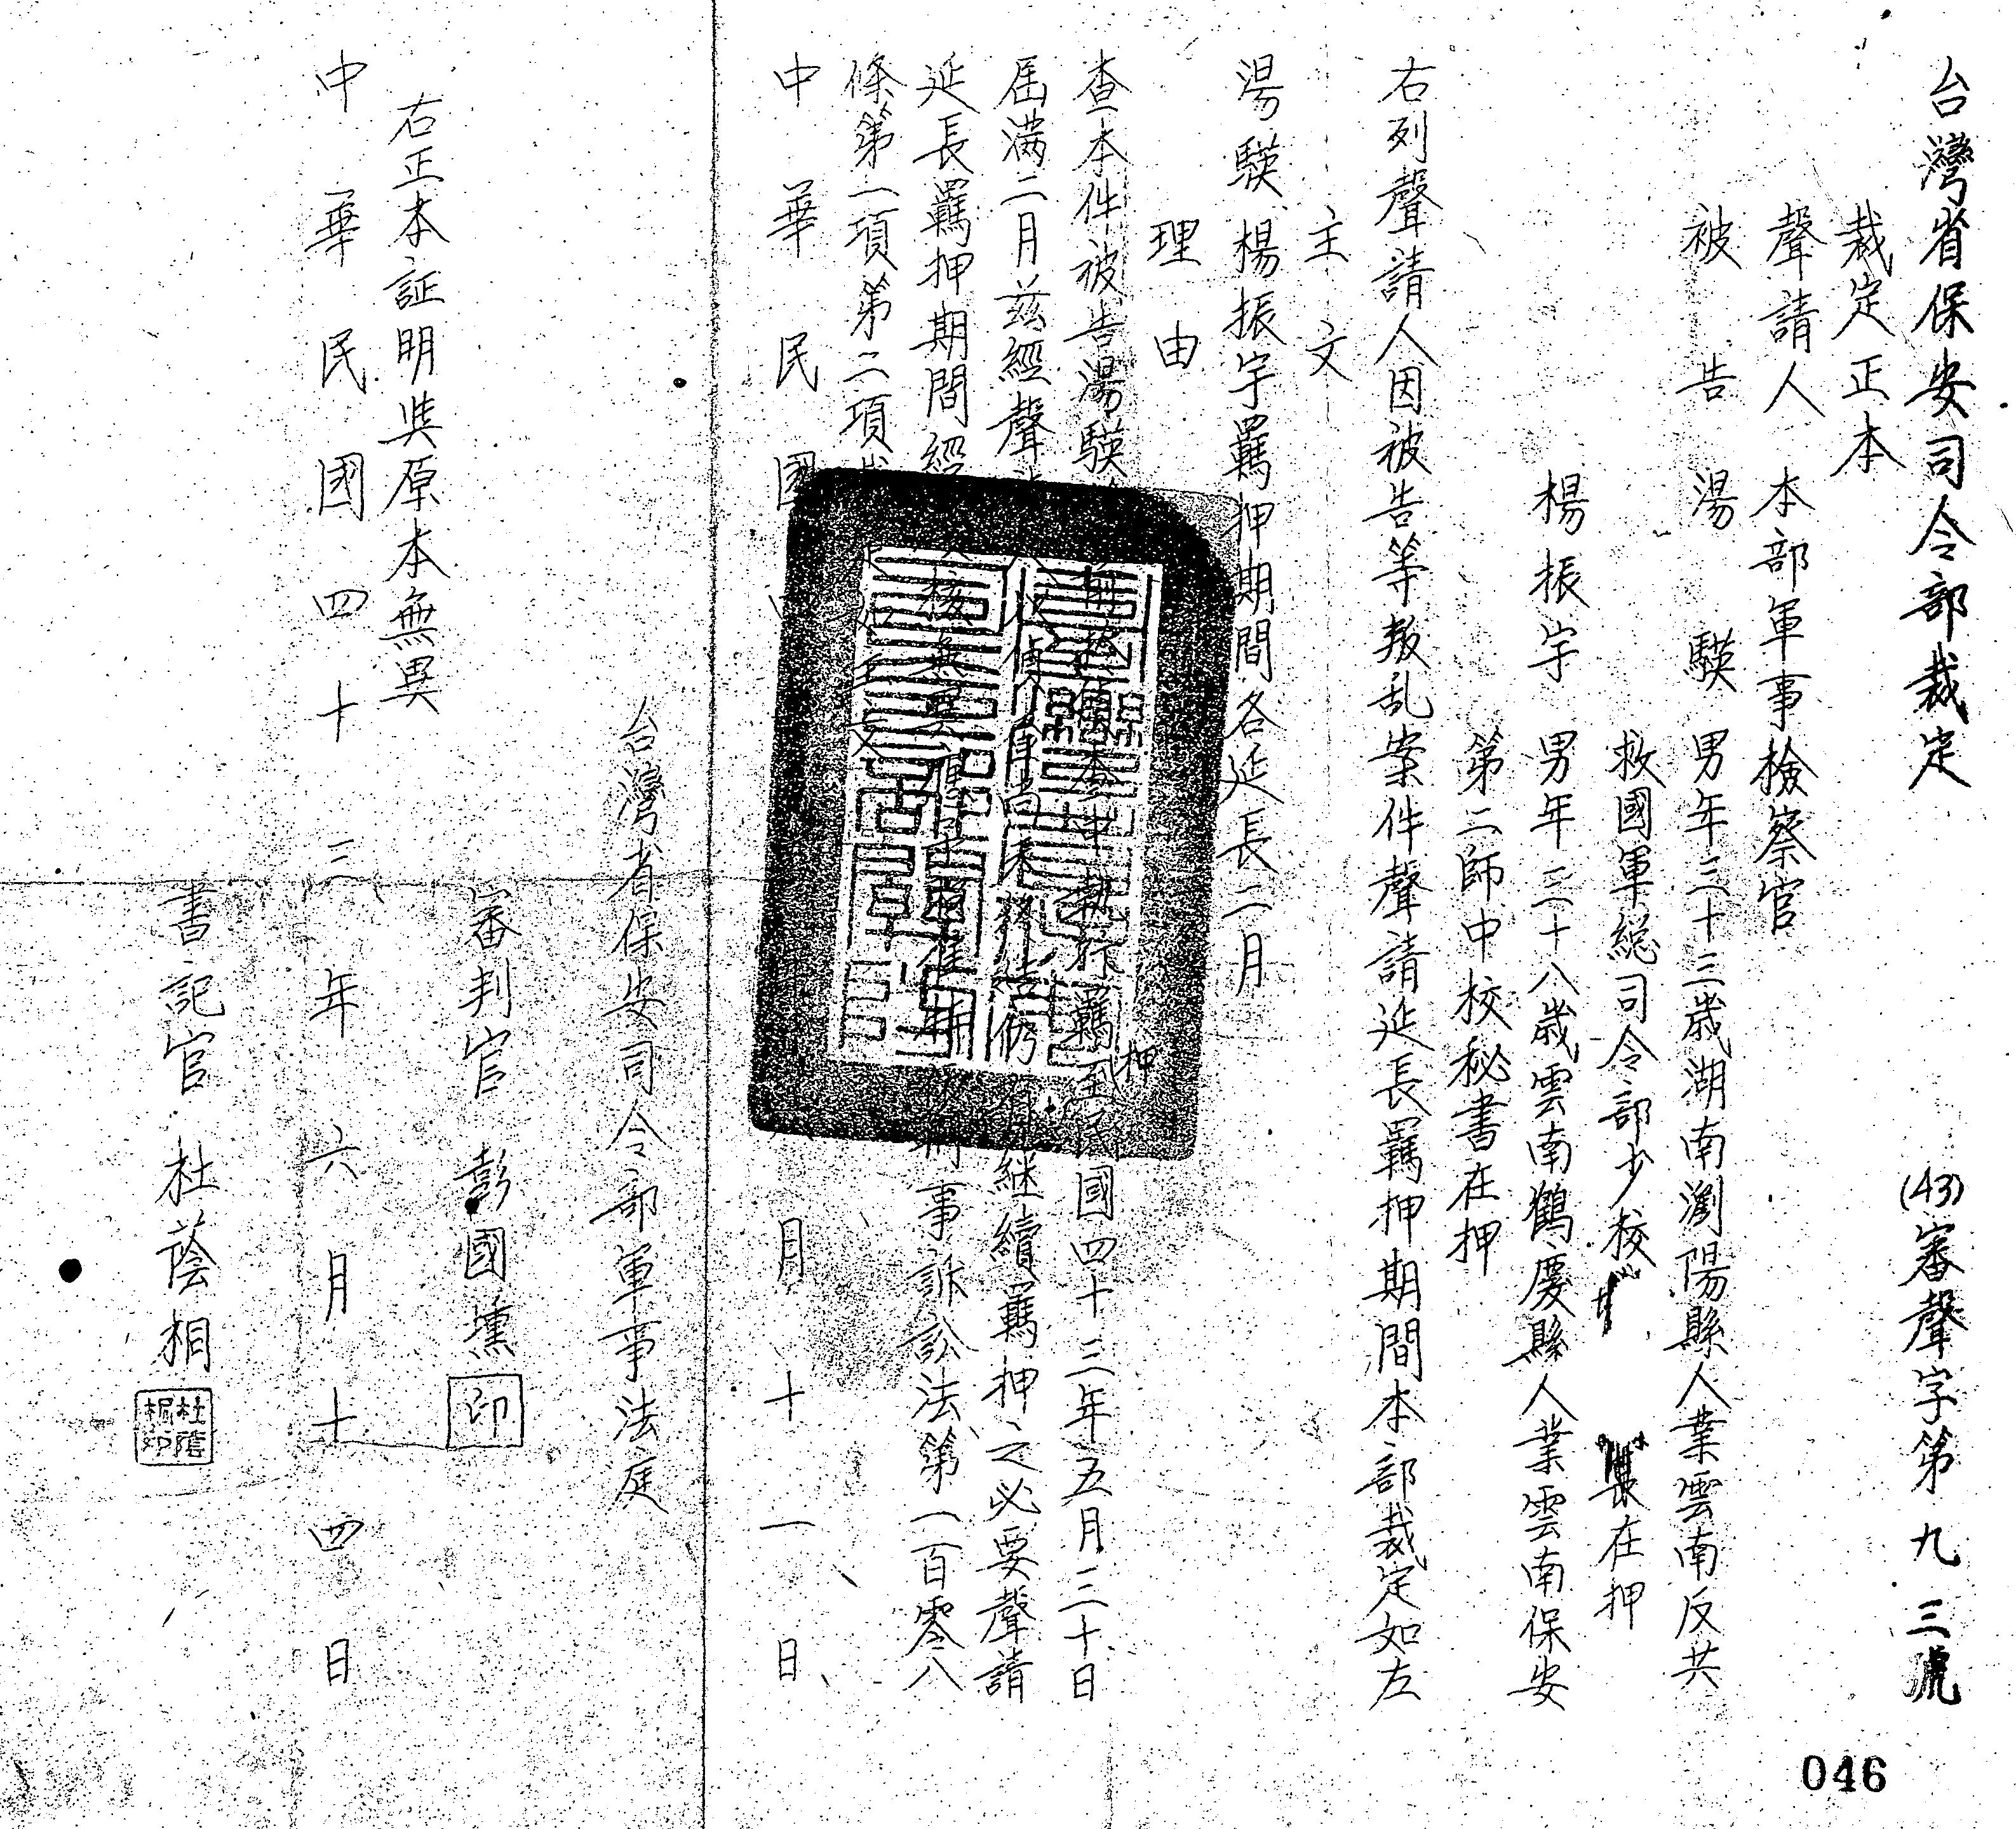 台灣省保安司令部裁定
(43)審聲字第九三號
裁定正本
聲請人　本部軍事檢察官
被告　湯　騤　男年三十三歲湖南瀏陽縣人業雲南反共
救國軍總司令部少校　在押
楊振宇　男年三十八歲雲南鶴慶縣人業雲南保安
第二師中校秘書在押
右列聲請人因被告等叛乱案件聲請延長羈押期間本部裁定如左
主文
湯騤楊振宇羈押期間各延長二月
理由
查本件被告湯騤　前於偵查中執行羈押至民國四十三年五月三十日
屆滿二月茲經聲　以偵查尚未終結仍有繼續羈押之必要聲請
延長羈押期間經　核無異　應予照准　刑事訴訟法第一百零八
條第一項第二項裁定如主文
中華民國四　月十一日
台灣省保安司令部軍事法庭
審判官　彭國壎　印
右正本証明與原本無異
中華民國四十三年六月十四日
書記官　杜蔭相
杜蔭相印
046